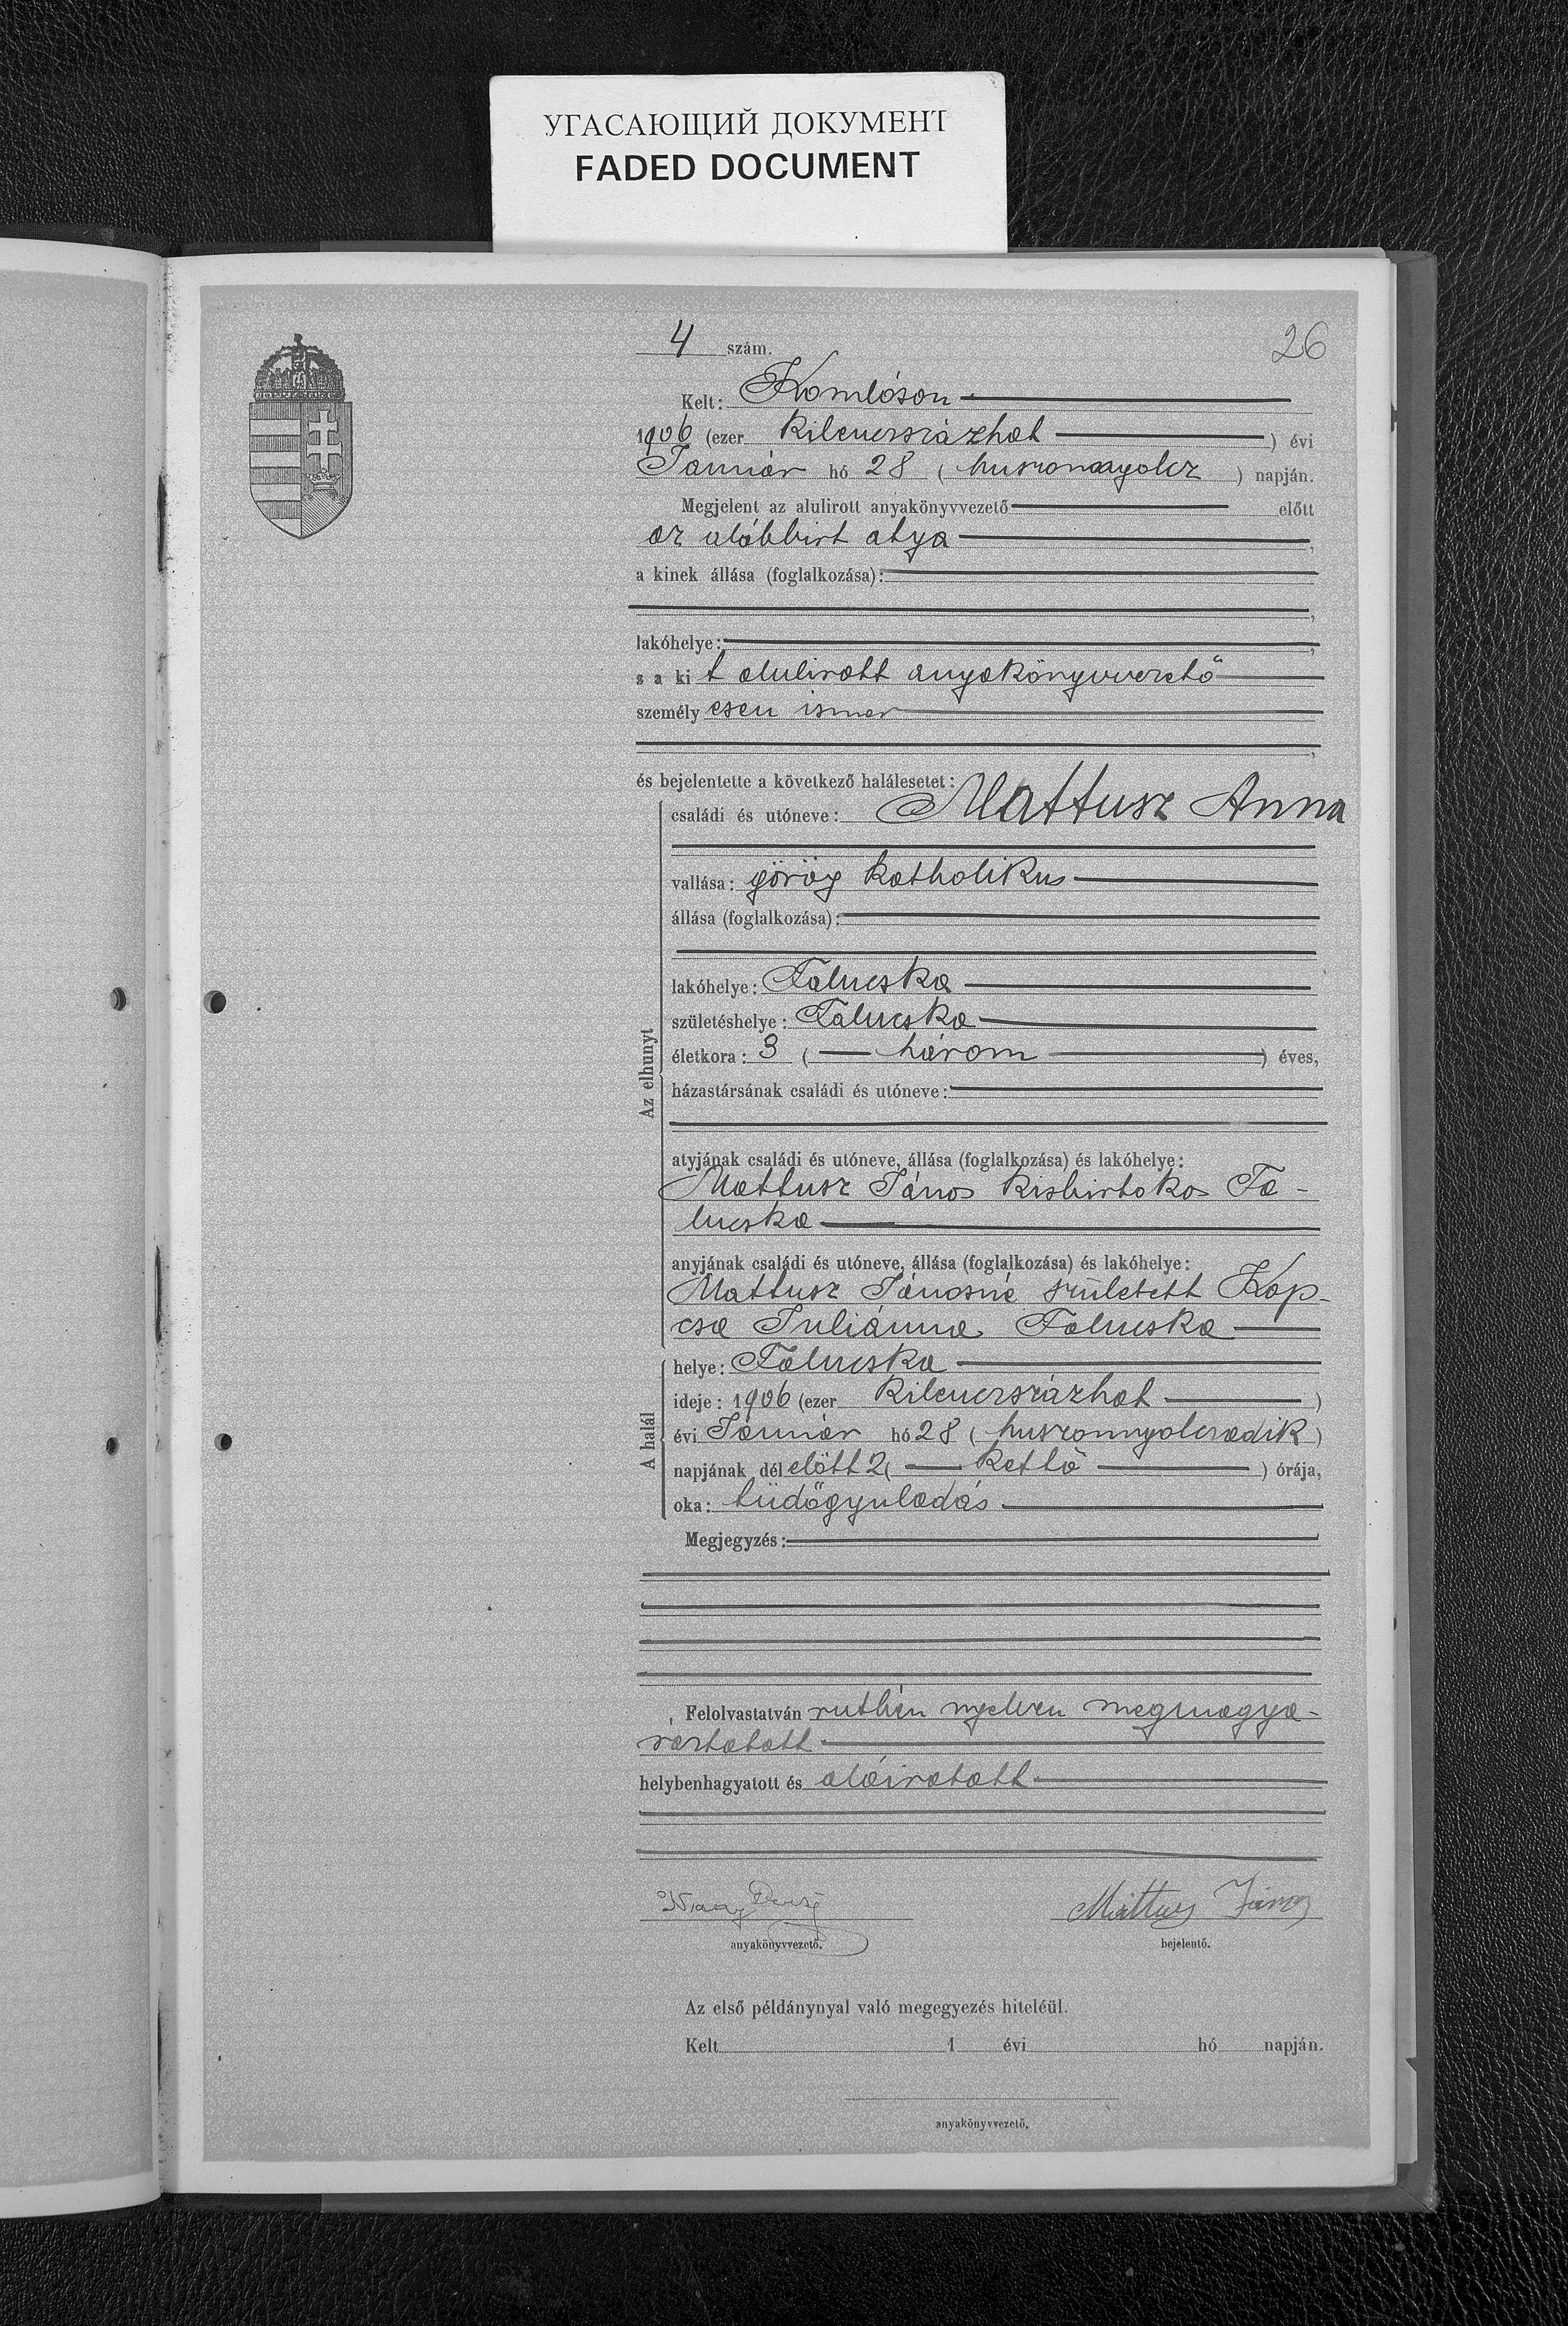 УГАСАЮЩИЙ ДОКУМЕНТ
FADED DOCUMENT
4 szám.
26
Kelt: Komlóson
1906 (ezer kilenczszázhat) évi
Január hó 28 (huszonnyolcz) napján.
Megjelent az alulirott anyakönyvvezető előtt
az alábbirt atya,
a kinek állása (foglalkozása):
,
lakóhelye: ,
s a ki t alulirott anyakönyvvezető
személy esen ismer
,
és bejelentette a következő halálesetet:
Az elhunyt
családi és utóneve: Mattusz Anna
vallása: görög katholikus
állása (foglalkozása):
lakóhelye: Falucska
születéshelye: Falucska
életkora: 3 (három) éves,
házastársának családi és utóneve:
atyjának családi és utóneve, állása (foglalkozása) és lakóhelye:
Mattusz János kisbirtokos Fa-
lucska
anyjának családi és utóneve, állása (foglalkozása) és lakóhelye:
Mattusz Jánosné született Kop-
csa Juliánna Falucska
A halál
helye: Falucska
ideje: 1906 (ezer kilenczszázhat)
évi Január hó 28 (huszonnyolczadik)
napjának dél előtt 2 (kettő) órája,
oka: tüdőgyuladás
Megjegyzés:
Felolvastatván ruthén nyelven megmagya-
ráztatott
helybenhagyatott és aláiratott
Mattus János
anyakönyvvezető.
bejelentő.
Az első példánynyal való megegyezés hiteléül.
Kelt 1 évi hó napján.
anyakönyvvezető.